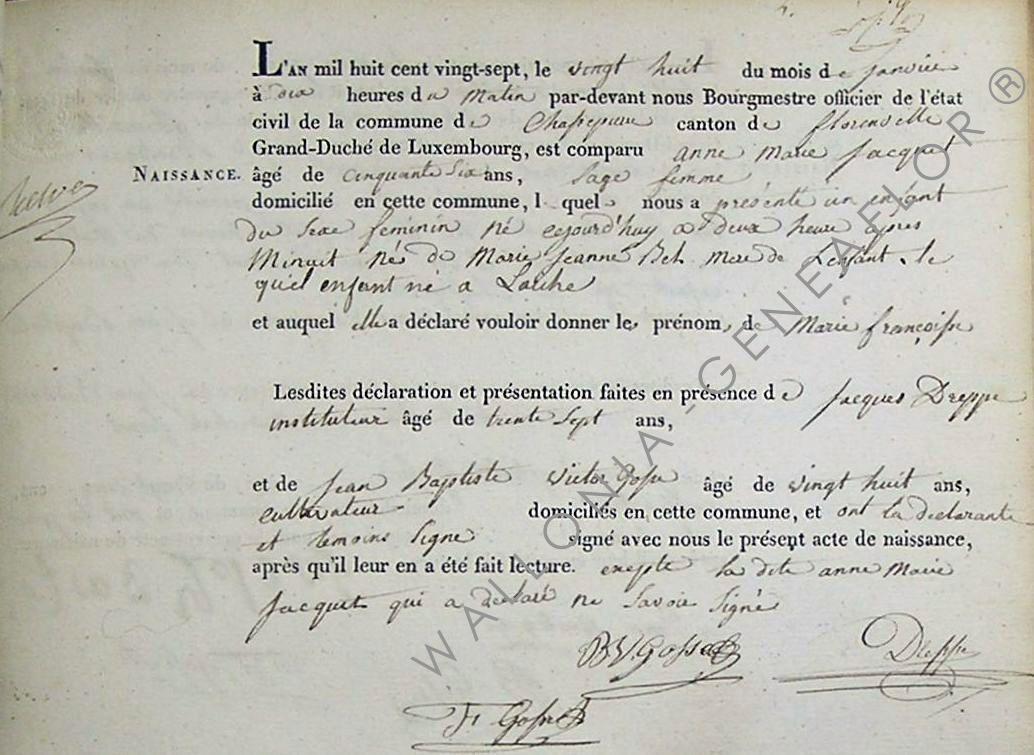 L'AN mil huit cent vingt-sept, le vingt huit du mois de janvier
à dix heures du Matin par-devant nous Bourgmestre officier de l'état
civil de la commune de Chassepierre canton de florenville
Grand-Duché de Luxembourg, est comparu anne Marie Jacquet
NAISSANCE. âgé de cinquante six ans, sage femme
domicilié en cette commune, l quel nous a présenté un enfant
du sexe feminin né cejourd'huy a deux heure apres
Minuit Nés de Marie Jeanne Mere de Lenfant. le
quel enfant né a Laiche
et auquel elle a déclaré vouloir donner les prénom, de Marie françoise
Lesdites déclaration et présentation faites en présence de Jacques Dreppe
instituteur âgé de trente sept ans,
et de Jean Baptiste Victor Gosse âgé de vingt huit ans,
cultivateur domiciliés en cette commune, et ont la declarante
et temoins Signé signé avec nous le présent acte de naissance,
après qu'il leur en a été fait lecture. exepté la dite anne Marie
Jacquet qui a declaré ne Savoir Signé
BV. Gosse Dreppe
WALLONIA GENEAFLOR ®